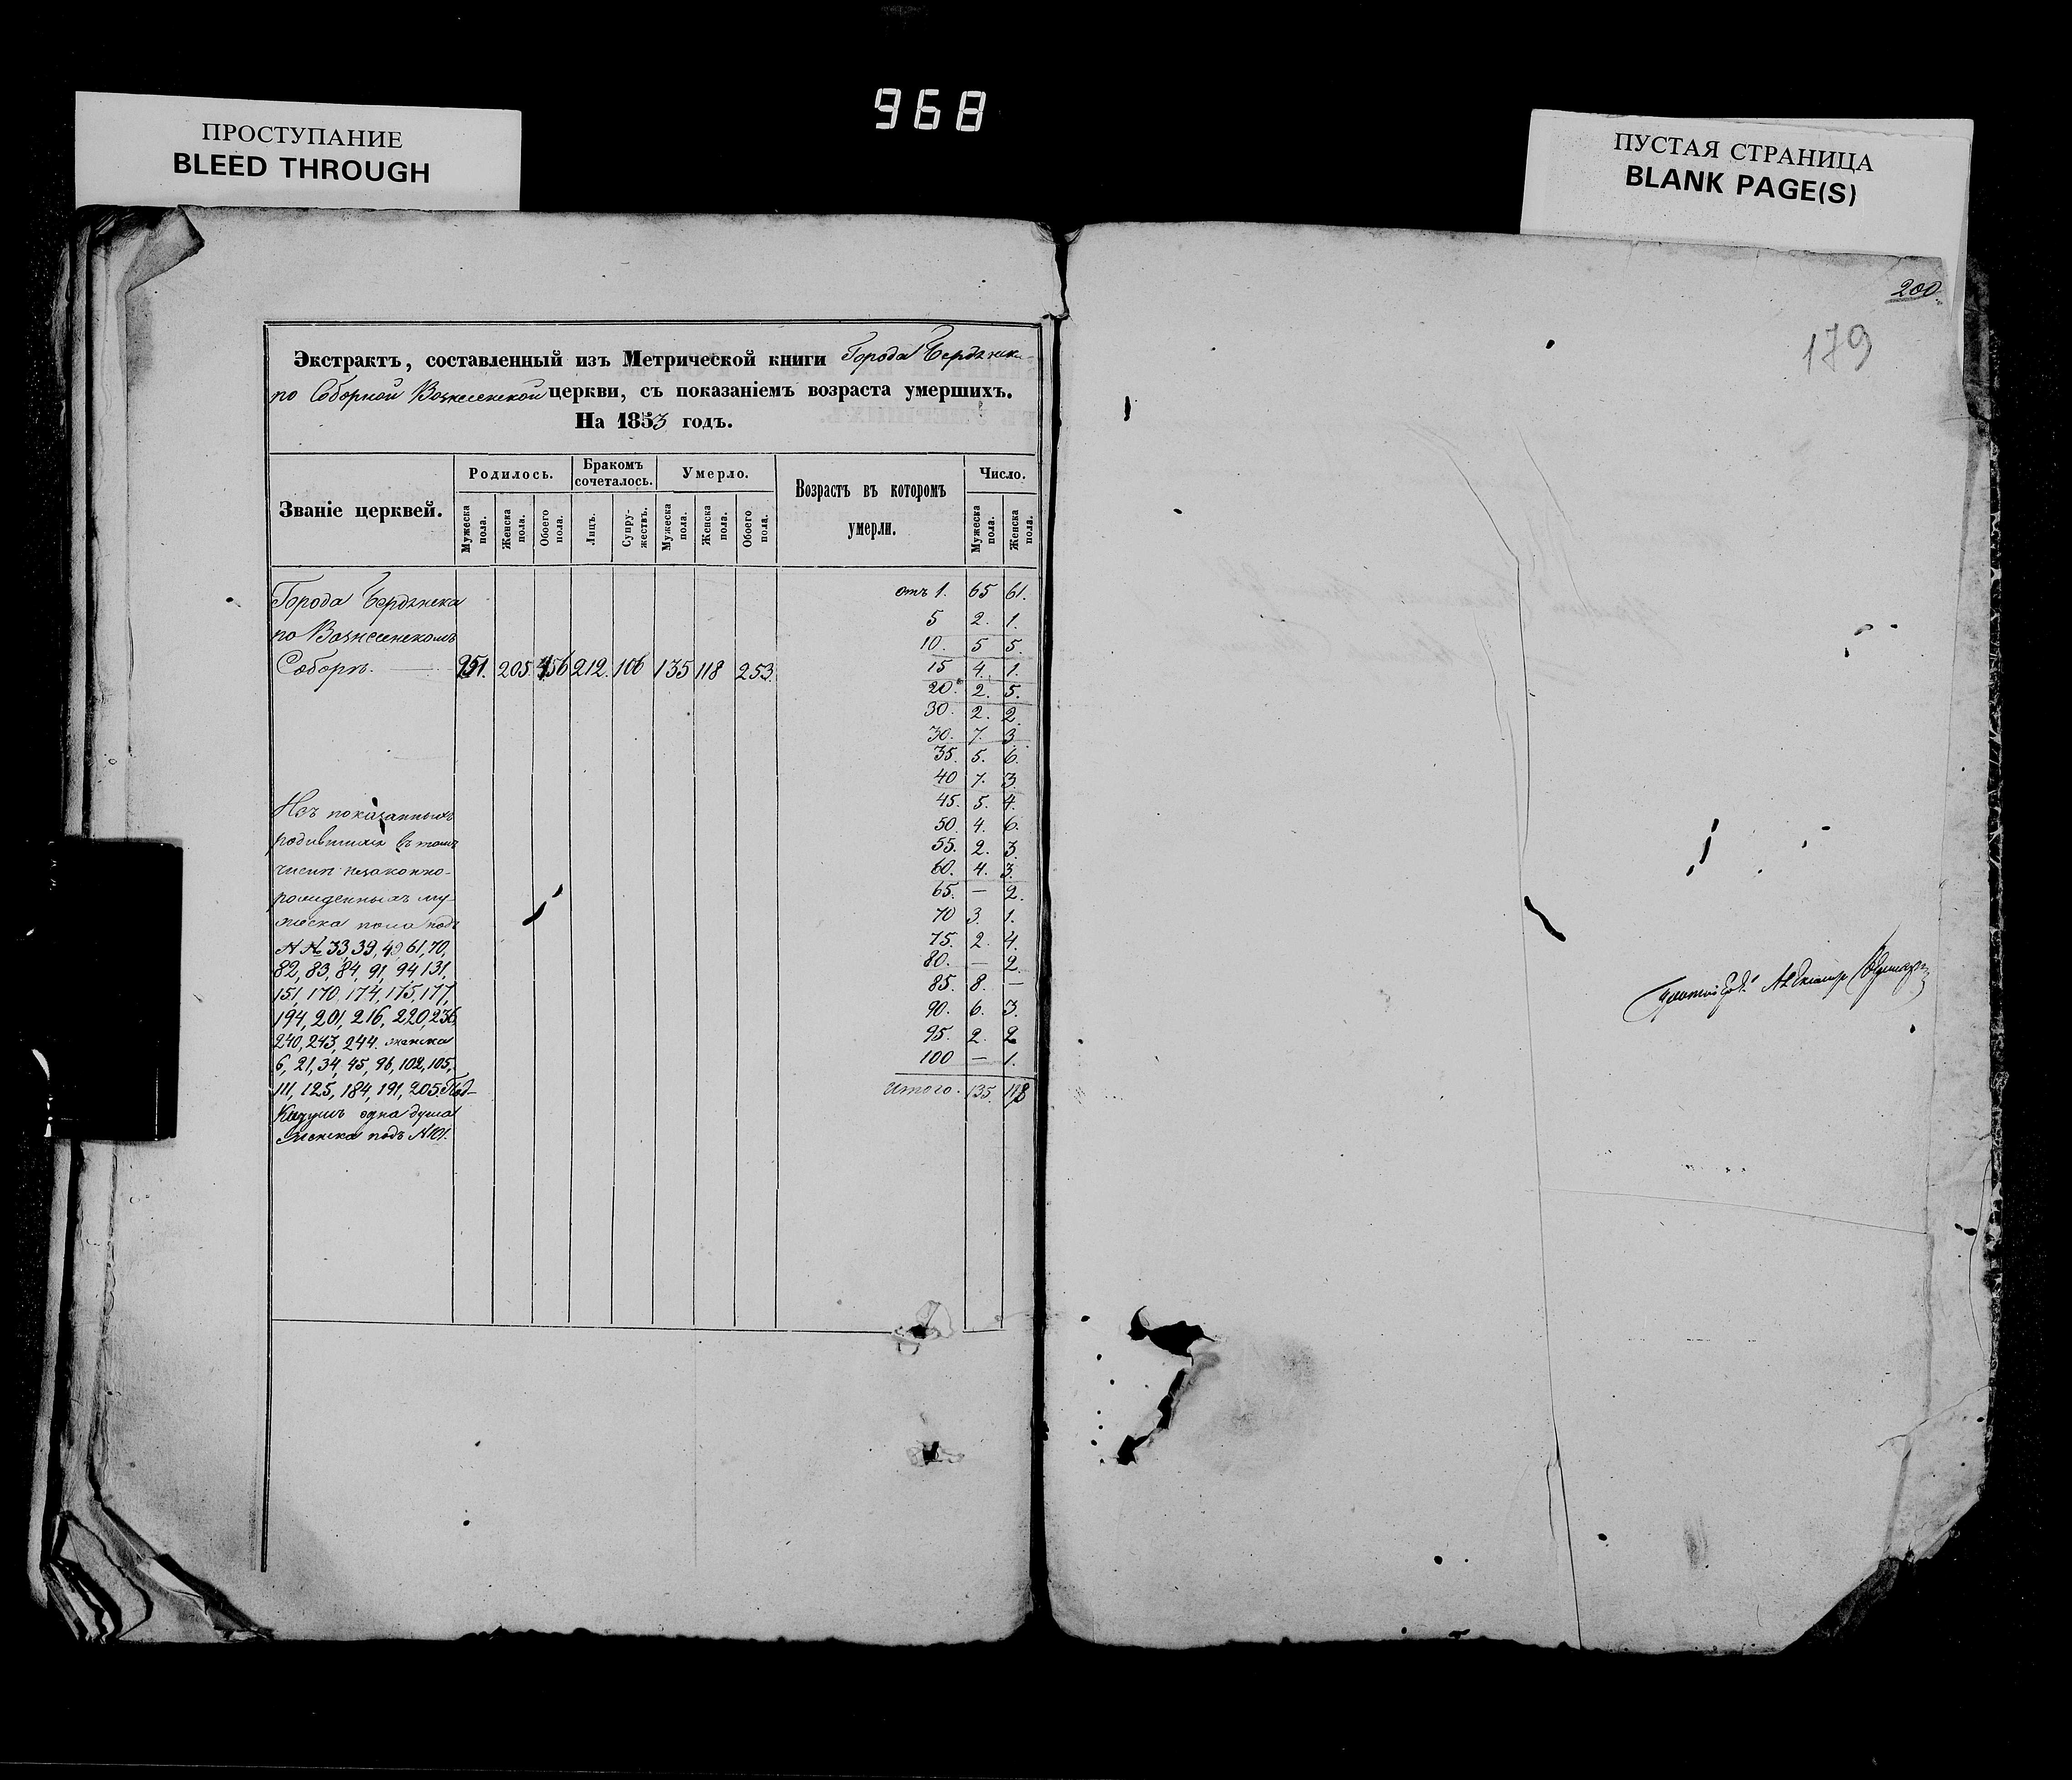 968
ПРОСТУПАНИЕ
BLEED THROUGH
ПУСТАЯ СТРАНИЦА
BLANK PAGE(S)
Экстрактъ, составленный изъ Метрической книги Города Бердянска
по Соборной Вознесенской церкви, съ показаніемъ возраста умершихъ.
На 1853 годъ.
Званіе церквей.
Родилось.
Бракомъ сочеталось.
Умерло.
Возрастъ въ которомъ умерли.
Число.
Мужеска пола.
Женска пола.
Обоего пола.
Лицъ.
Супружествъ.
Мужеска пола.
Женска пола.
Обоего пола.
Мужеска пола.
Женска пола.
Города Бердянска
по Вознесенскомъ
Соборѣ. 251. 205. 456 212. 106 135 118 253.
отъ 1. 65 61.
5 2. 1.
10. 5 5.
15 4. 1.
20. 2. 5.
30. 2. 2.
30. 7. 3.
35. 5. 6.
40 7. 3.
45. 5. 4.
50. 4. 6.
55. 2. 3.
60. 4. 3.
65. — 2.
70 3. 1.
75. 2. 4.
80. — 2.
85. 8. —
90. 6. 3.
95. 2. 2
100 — 1.
Итого. 135. 118
Изъ показанныхъ
родившихся въ томъ
числѣ незаконно-
рожденныхъ му-
жеска пола подъ
№№ 33, 39, 49, 61, 70,
82, 83, 84, 91, 94, 131,
151, 170, 174, 175, 177,
194, 201, 216, 220, 236,
240, 243, 244. женска
6, 21, 34, 45, 96, 102, 105,
111, 125, 184, 191, 205. Под-
Кидушъ одна душа
Женска подъ № 101.
200
179